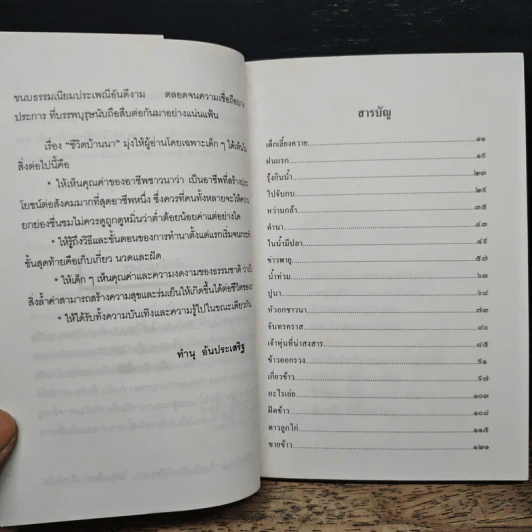 ขนบธรรมเนียมประเพณีอันดีงาม ตลอดจนความเชื่อถือบาง
ประการ ที่บรรพบุรุษนับถือสืบต่อกันมาอย่างแน่นแฟ้น
เรื่อง “ชีวิตบ้านนา” มุ่งให้ผู้อ่านโดยเฉพาะเด็ก ๆ ได้เห็นใน
สิ่งต่อไปนี้คือ
* ให้เห็นคุณค่าของอาชีพชาวนาว่า เป็นอาชีพที่สร้าง
โยชน์ต่อสังคมมากที่สุดอาชีพหนึ่ง ซึ่งควรที่คนทั้งหลายจะให้
ยกย่องชื่นชมไม่ควรดูถูกดูหมิ่นว่าต่ำต้อยน้อยค่าแต่อย่างใด
* ให้รู้ถึงวิธีและขั้นตอนของการทำนาตั้งแต่แรกเริ่มจน
ขั้นสุดท้ายคือเก็บเกี่ยว นวดและฝัด
* ให้เด็ก ๆ เห็นคุณค่าและความงดงามของธรรมชาติ ว่า
สิ่งล้ำค่าสามารถสร้างความสุขและร่มเย็นให้เกิดขึ้นได้ต่อชีวิตของ
* ให้ได้รับทั้งความบันเทิงและความรู้ไปในขณะเดียวกัน
ทำนุ อันประเสริฐ
สารบัญ
เด็กเลี้ยงควาย ๑๑
ฝนแรก ๑๙
รุ้งกินน้ำ ๒๓
ไปจับกบ ๒๙
หว่านกล้า ๓๕
ดำนา ๔๓
ในน้ำมีปลา ๔๙
ข้าวพายุ ๕๗
น้ำท่วม ๖๓
ปูนา ๖๘
หัวอกชาวนา ๗๓
จันทรคราส ๘๐
เจ้าทุยที่น่าสงสาร ๘๕
ข้าวออกรวง ๙๑
เกี่ยวข้าว ๙๗
อะไรเอ่ย ๑๐๓
ฝัดข้าว ๑๐๘
ดาวลูกไก่ ๑๑๕
ขายข้าว ๑๒๑